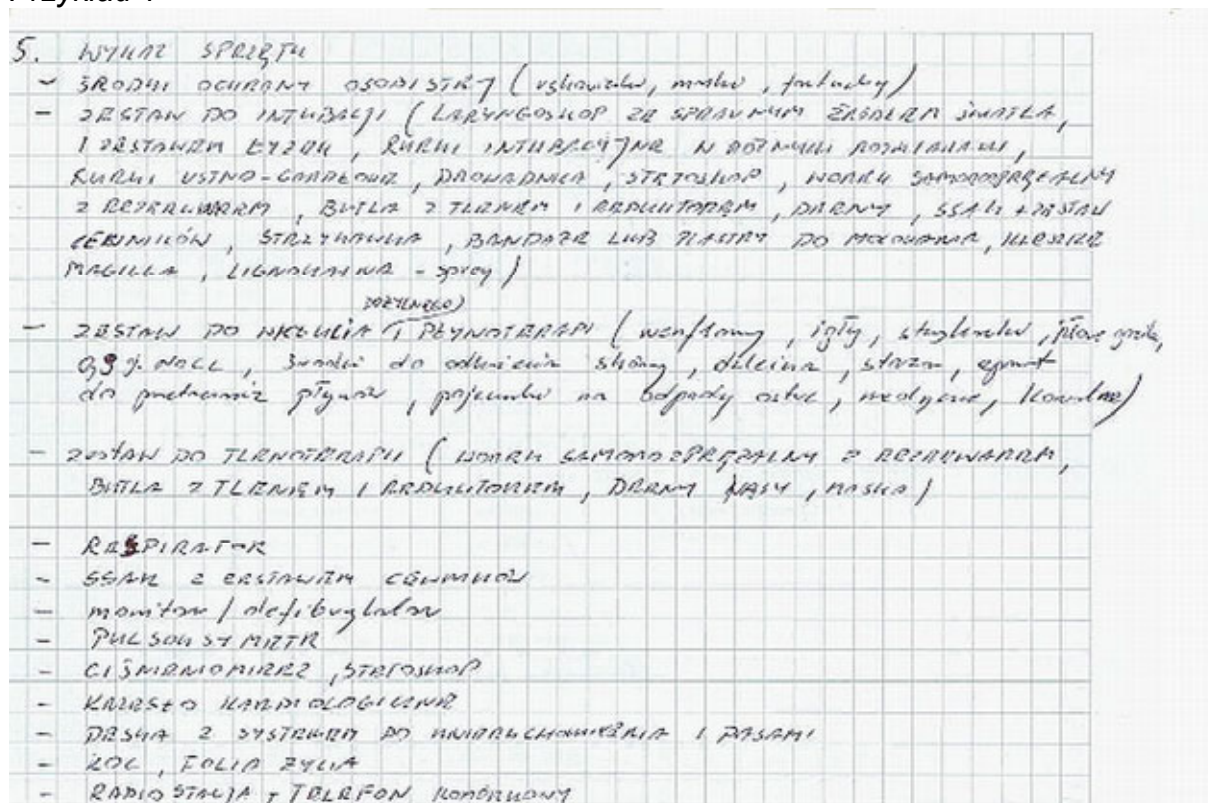 5. WYKAZ SPRZĘTU
- ŚRODKI OCHRONY OSOBISTEJ (rękawiczki, maska, fartuchy)
- ZESTAW DO INTUBACJI (LARYNGOSKOP ZE SPRAWNYM ŹRÓDŁEM ŚWIATŁA,
I ZESTAWEM ŁYŻEK, RURKI INTUBACYJNE W RÓŻNYMI ROZMIARAMI,
RURKI USTNO-GARDŁOWE, PROWADNICA, STETOSKOP, WOREK SAMOROZPRĘŻALNY
Z REZERWUAREM, BUTLA Z TLENEM I REDUKTOREM, DRENY, SSAK + ZESTAW
CEWNIKÓW, STRZYKAWKA, BANDAŻE LUB PLASTRY DO MOCOWANIA, KLESZCZE
MAGILLA, LIGNOKAINA - spray)
DOŻYLNEGO)
- ZESTAW DO WKŁUCIA I PŁYNOTERAPII (wenflony, igły, , jałowe gaziki,
0,9% NaCl, środki do odkażenia skóry, , staza,
do przetaczania płynów, pojemniki na odpady ostre, medyczne, )
- zestaw DO TLENOTERAPII (WOREK SAMOROZPRĘŻALNY Z REZERWUAREM,
BUTLA Z TLENEM I REDUKTOREM, DRENY, WĄSY, MASKA)
- RESPIRATOR
- SSAK Z ZESTAWEM CEWNIKÓW
- monitor / defibrylator
- PULSOKSYMETR
- CIŚNIENIOMIERZ, STETOSKOP
- KRZESŁO KARDIOLOGICZNE
- DESKA Z SYSTEMEM DO UNIERUCHOMIENIA I PASAMI
- KOC, FOLIA ŻYCIA
- RADIOSTACJA + TELEFON KOMÓRKOWY